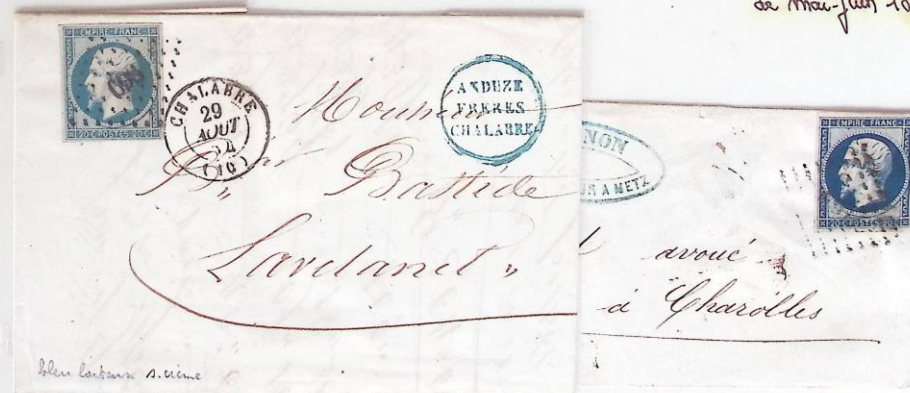 de Mai-Juin
EMPIRE FRANC
20 C POSTES 20 C
CHALABRE
29
AOUT
54
(10)
ANDUZE
FRERES
CHALABRE
Monsieur
Bastide
Lavelanet
bleu laiteux s. crème
NON
A METZ
EMPIRE FRANC
20 C POSTES 20 C
avoué
à Charolles